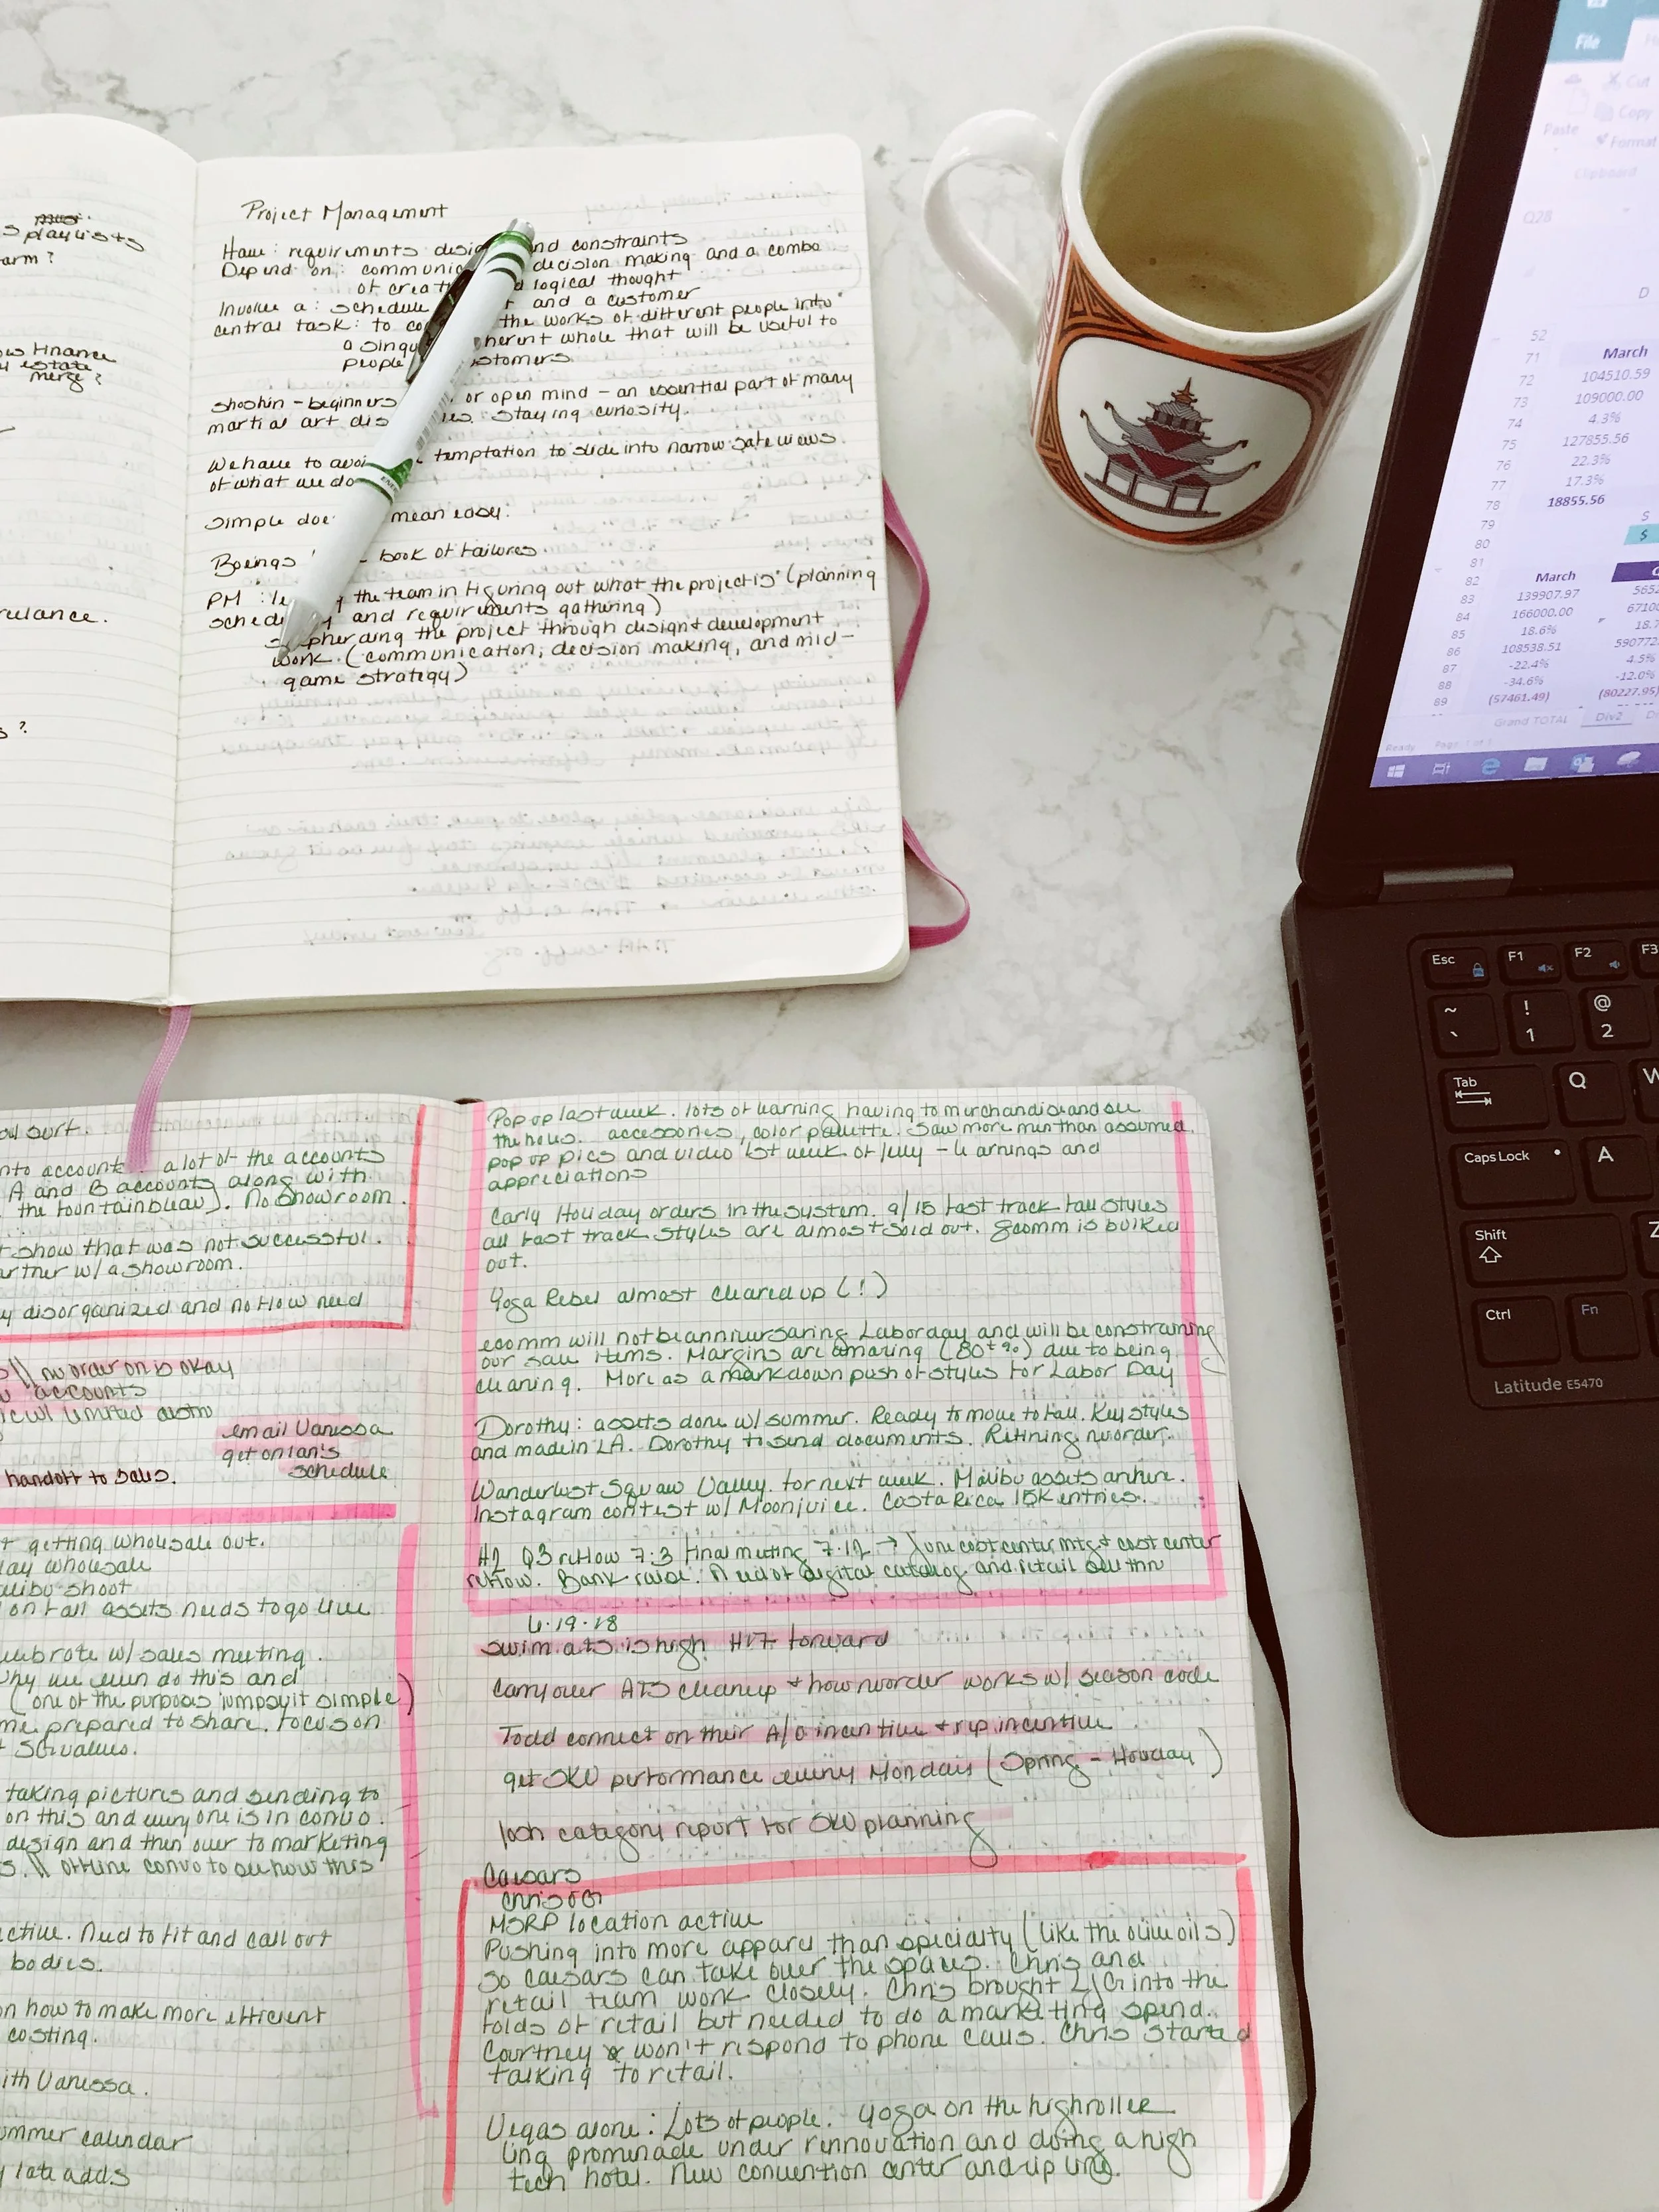 playlists
arm?
Finance
estate
merge?
Project Management
Have: requirements desi nd constraints
Depend on: communic decision making and a combo
of creat d logical thought
Involve a: schedule and a customer
central task: to co the works of different people into
a singu herent whole that will be useful to
people stomers
shoshin - beginners or open mind - an essential part of many
martial art dis ies. staying curiosity.
We have to avoi temptation to slide into narrow safe views
of what we do
Simple doe mean easy.
Boeings book of failures.
PM : le the team in figuring out what the project is (planning
schedu and requirements gathering)
s pherding the project through design & development
work. (communication, decision making, and mid-
game strategy)
File
Cut
Copy
Paste
Format
Clipboard
Q28
D
52
71 March
72 104510.59
73 109000.00
74 4.3%
75 127855.56
76 22.3%
77 17.3%
78 18855.56
79 $
80 $
81
82 March
83 139907.97 5652
84 166000.00 6710
85 18.6% 18.7
86 108538.51 590772
87 -22.4% 4.5%
88 -34.6% -12.0%
89 (57461.49) (80227.95)
Grand TOTAL Div2
Ready
Esc F1 F2 F3
~ ! @
` 1 2
Tab Q W
Caps Lock A
Shift Z
Ctrl Fn
Latitude E5470
surf.
nto account. a lot of the accounts
A and B accounts along with
the fountainbleau). No Showroom
show that was not successful.
artner w/ a showroom.
y disorganized and no flow need
nuorder on is okay
accounts
limited distro
email Vanessa
get on Ian's
schedule
handoff to sales.
getting wholesale out.
ay wholesale
alibu shoot
on fall assets needs to go live
w/ sales meeting.
why we even do this and
(one of the purposes jumpsuit simple)
me prepared to share. focus on
values.
taking pictures and sending to
on this and everyone is in convo.
design and then over to marketing
offline convo to see how this
ctive. Need to fit and call out
bodies.
on how to make more efficient
costing.
ith Vanessa.
ummer calendar
late adds
Pop up last week. lots of learning having to merchandise and see
the holes. accessories, color palette. Saw more men than assumed.
pop up pics and video 1st week of July - learnings and
appreciations
Early Holiday orders in the system. 9/15 fast track fall styles
all fast track styles are almost sold out. Ecomm is bulked
out.
Yoga Rebel almost cleared up (!)
ecomm will not be anniversaring Labor day and will be constraining
our sale items. Margins are amazing (80+%) due to being
cleaning. More as a markdown push of styles for Labor Day
Dorothy: assets done w/ summer. Ready to move to fall. Key styles
and made in LA. Dorothy to send documents. Refining nuorder.
Wanderlust Squaw Valley for next week. Malibu assets are here.
Instagram contest w/ Moonjuice. Costa Rica 15K entries.
Q3 reflow 7.3 final meeting 7.12 → June cost center mtg & cost center
reflow. Bank raise. Need of digital catalog and retail sell thru
6.19.18
swim ats is high H17 forward
Carryover ATS cleanup + how nuorder works w/ season code
Todd connect on their A/O incentive + rep incentive
get SKU performance every Monday (Spring - Holiday)
category report for SKU planning
Caesars
Chris
MSRP location active
Pushing into more apparel than specialty (like the olive oils)
so caesars can take over the spaces. Chris and
retail team work closely. Chris brought into the
folds of retail but needed to do a marketing spend.
Courtney won't respond to phone calls. Chris started
talking to retail.
Vegas alone: Lots of people. yoga on the highroller
Linq promenade under rennovation and doing a high
tech hotel. New convention center and zip line.